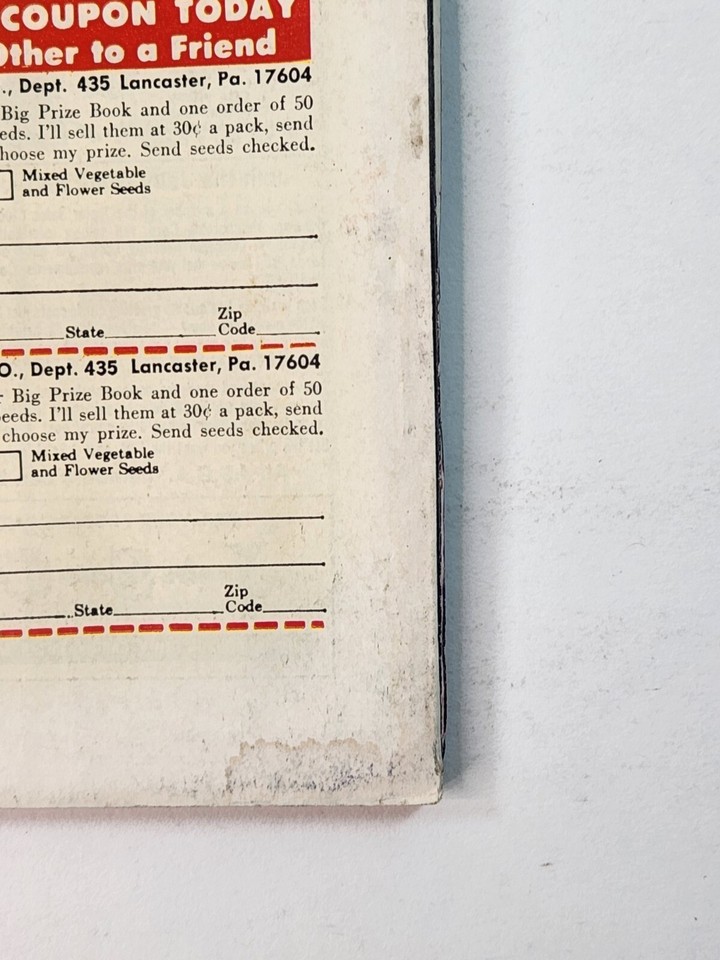 COUPON TODAY
Other to a Friend
., Dept. 435 Lancaster, Pa. 17604
Big Prize Book and one order of 50
eds. I'll sell them at 30¢ a pack, send
hoose my prize. Send seeds checked.
Mixed Vegetable
and Flower Seeds
Zip
State Code
O., Dept. 435 Lancaster, Pa. 17604
Big Prize Book and one order of 50
eeds. I'll sell them at 30¢ a pack, send
choose my prize. Send seeds checked.
Mixed Vegetable
and Flower Seeds
Zip
State Code